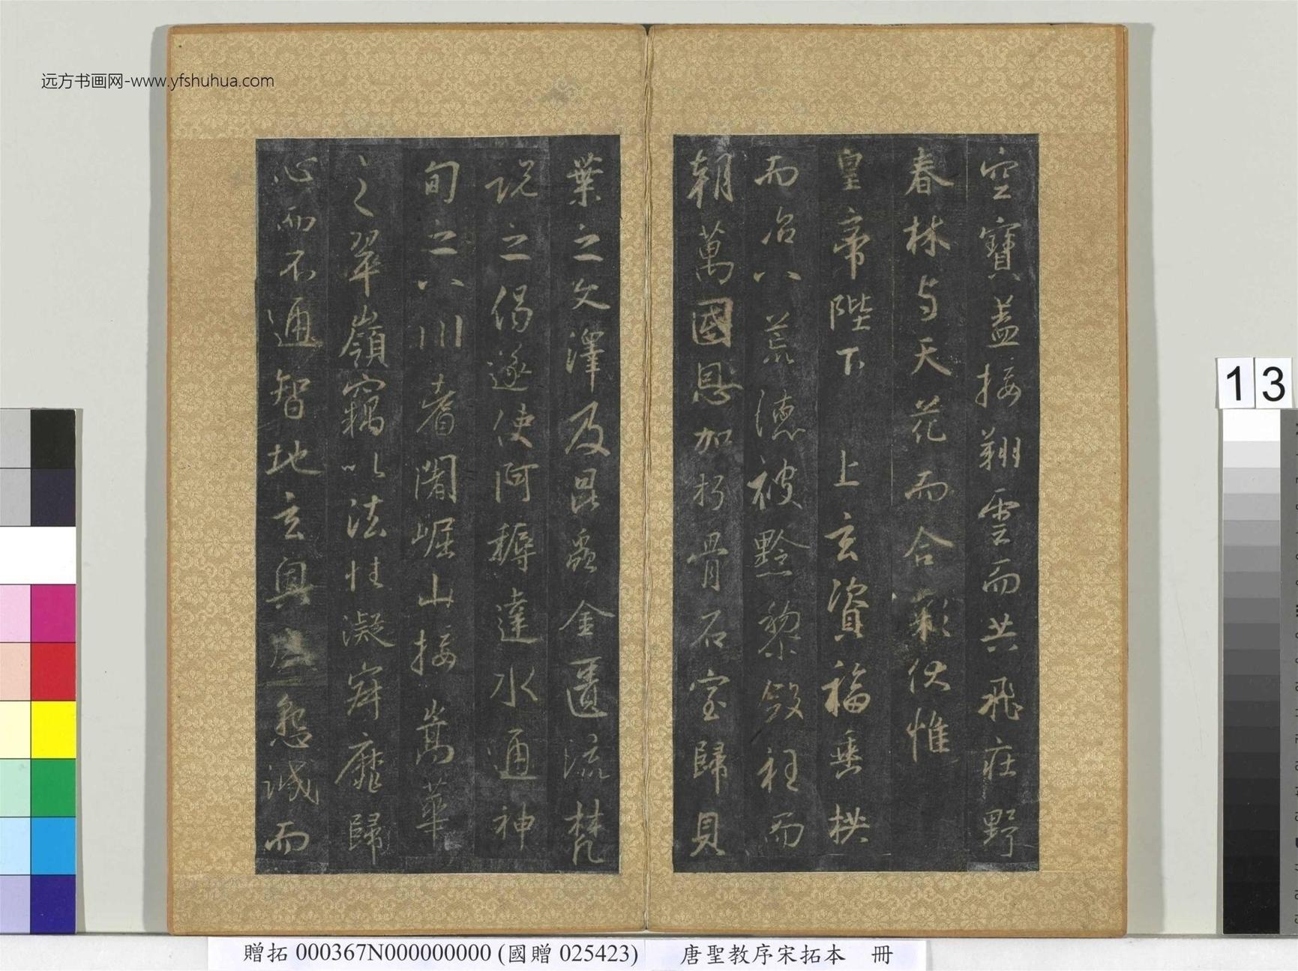 远方书画网-www.yfshuhua.com
空寶蓋接翔雲而共飛莊野
春林与天花而合彩伏惟
皇帝陛下 上玄資福垂拱
而治八荒德被黔黎斂衽而
朝萬國恩加朽骨石室歸貝
葉之文澤及昆蟲金匱流梵
說之偈遂使阿耨達水通神
甸之八川耆闍崛山接嵩華
之翠嶺竊以法性凝寂靡歸
心而不通智地玄奧感懇誠而
13
贈拓 000367N000000000 (國贈 025423) 唐聖教序宋拓本 冊